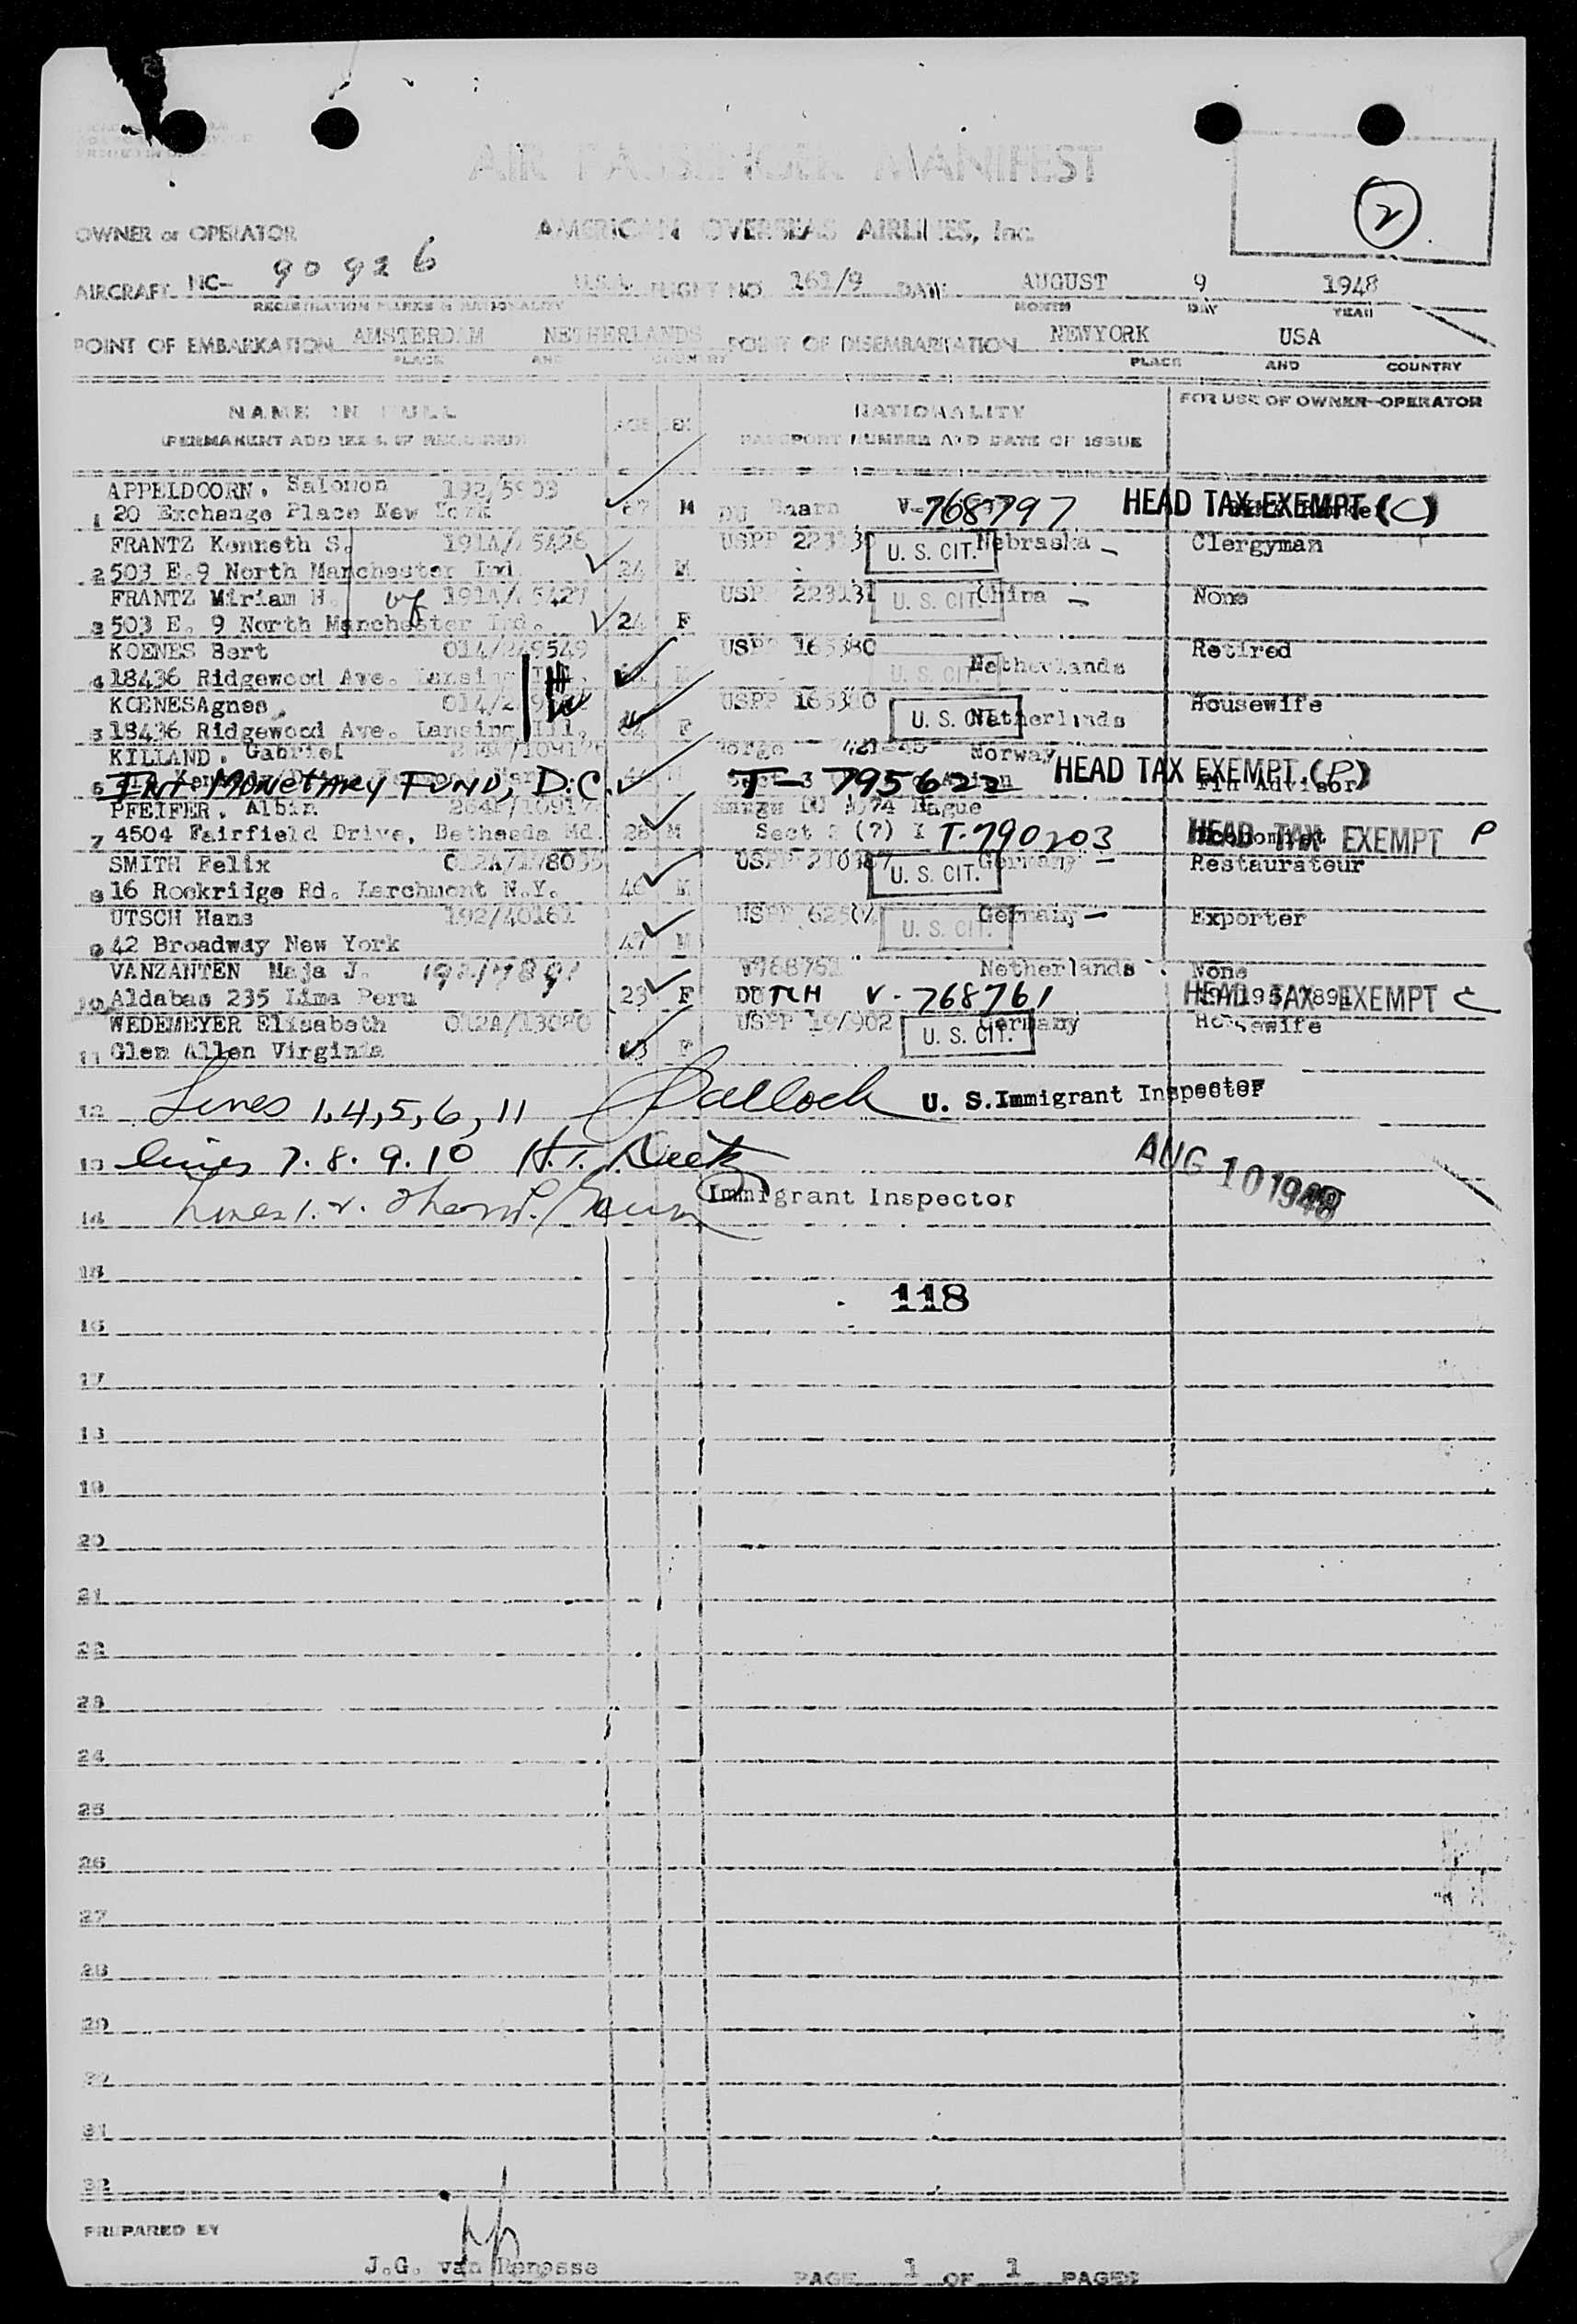 AIR PASSENGER MANIFEST
2
OWNER or OPERATOR AMERICAN OVERSEAS AIRLINES, Inc.
AIRCRAFT NC- 90926 U.S.A. FLIGHT NO. 161/9 DATE AUGUST 9 1948
REGISTRATION MARKS & NATIONALITY MONTH DAY YEAR
POINT OF EMBARKATION AMSTERDAM NETHERLANDS POINT OF DISEMBARKATION NEWYORK USA
PLACE AND COUNTRY PLACE AND COUNTRY
NAME IN FULL AGE SEX NATIONALITY FOR USE OF OWNER-OPERATOR
(PERMANENT ADDRESS, IF REQUIRED) PASSPORT NUMBER AND DATE OF ISSUE
APPELDOORN. Salomon
1 20 Exchange Place New York M DU Baarn V-768797 HEAD TAX EXEMPT (C)
FRANTZ Kenneth S. 191A/ 5426 USPP U. S. CIT. Nebraska Clergyman
2 503 E.9 North Manchester Ind. 24 M
FRANTZ Miriam H. wf 191A/ 5427 USPP 223131 U. S. CIT. China None
3 503 E. 9 North Manchester Ind. 24 F
KOENES Bert 014/249549 USPP 165380 Retired
4 18436 Ridgewood Ave. Lansing Ill. M U. S. CIT. Netherlands
KOENESAgnes USPP 165380 Housewife
5 18436 Ridgewood Ave. Lansing Ill. 64 F U. S. CIT. Netherlands
KILLAND. Gabriel Norway
6 INT MONETARY FUND, D.C. M T-795622 HEAD TAX EXEMPT. (P)
Fin Advisor
PFEIFER. Albin Hague
7 4504 Fairfield Drive, Bethesda Md. 28 M Sect 3 (7) I T-790203 Economist HEAD TAX EXEMPT P
SMITH Felix 012A/178035 USPP U. S. CIT. Germany Restaurateur
8 16 Rockridge Rd. Larchmont N.Y. 46 M
UTSCH Hans 192/40161 USPP U. S. CIT. Germany Exporter
9 42 Broadway New York 47 M
VANZANTEN Maja J. 192/7891 V768761 Netherlands None
10 Aldabas 235 Lima Peru 23 F DUTCH V-768761 HEAD TAX EXEMPT C
WEDEMEYER Elisabeth 012A/13080 USPP 19/902 U. S. CIT. Germany Housewife
11 Glen Allen Virginia F
12 Lines 1,4,5,6,11 U. S. Immigrant Inspector
13 lines 7.8.9.10 AUG 10 1948
14 Immigrant Inspector
15
118
16
17
18
19
20
21
22
23
24
25
26
27
28
29
30
31
32
PREPARED BY
J.G. van
PAGE 1 OF 1 PAGES